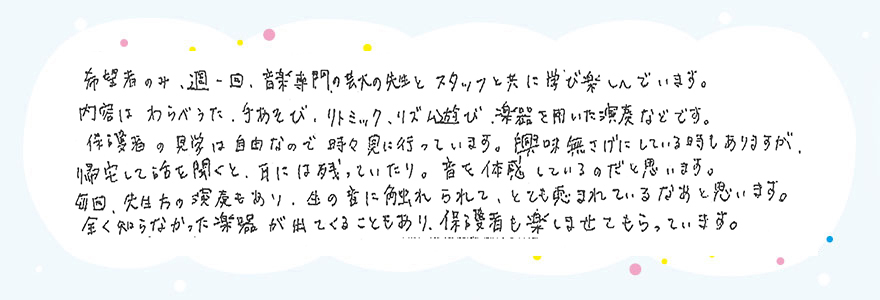 希望者のみ、週一回、音楽専門の芸大の先生とスタッフと共に学び楽しんでいます。
内容はわらべうた、手あそび、リトミック、リズム遊び、楽器を用いた演奏などです。
保護者の見学は自由なので時々見に行っています。興味無さげにしている時もありますが、
帰宅して話を聞くと、耳には残っていたり。音を体感しているのだと思います。
毎回、先生方の演奏もあり、生の音に触れられて、とても恵まれているなあと思います。
全く知らなかった楽器が出てくることもあり、保護者も楽しませてもらっています。